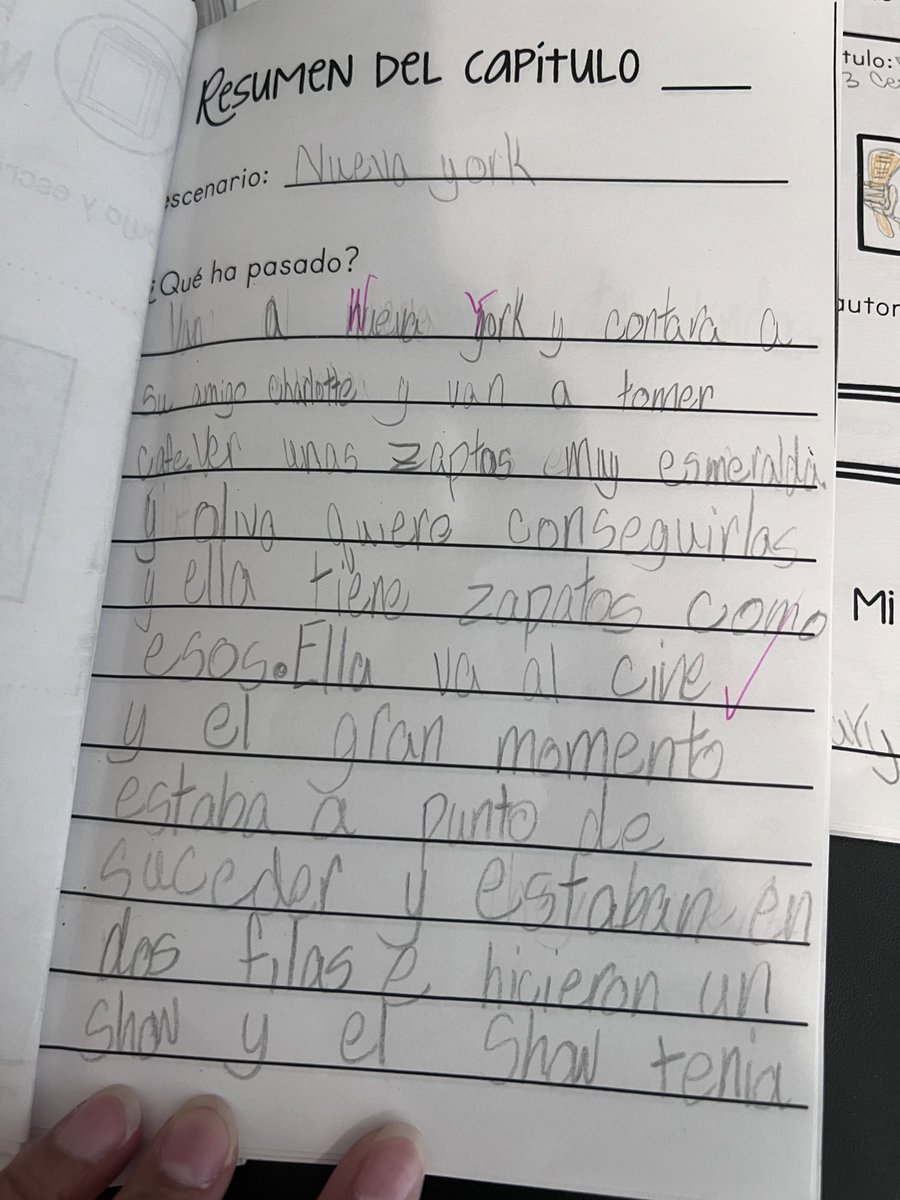 Resumen del capítulo ____
escenario: Nueva york
¿Qué ha pasado?
Van a Nueva York y contara a
su amigo Charlotte y van a tomer
cafe.Ver unas zaptos muy esmeralda
y oliva quiere conseguirlas
y ella tiene zapatos como
esos.Ella va al cine
y el gran momento
estaba a punto de
suceder y estaban en
dos filas e hicieron un
show y el show tenia
tulo:
3
autor
Mi